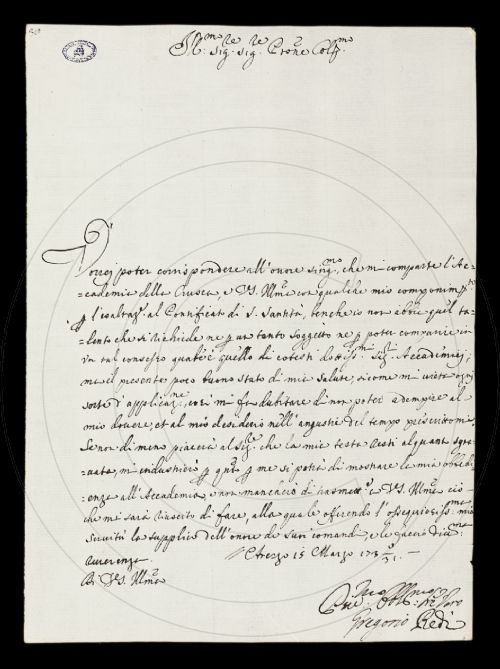 Ill:mo Sig:re Sig:re Prone Colmo
Vorrei poter corrispondere all'onore sing:mo, che mi comparte l'Ac=
=cademia della Crusca, e VS. Illma con qualche mio componim:to
p l'esaltaz:e al Pontificat di S. Santità, benche io non abbia quel ta=
=lento che si richiede ne p un tanto soggetto ne p poter comparire in
un tal consesso qual'è quello di cotesti dottiss:mi Sig:ri Accademici;
ma il presente poco buono stato di mia salute, siccome mi vieta ogni
sorte d'applicaz:ne, così mi fa dubitare di non poter adempire al
mio dovere, et al mio desiderio nell'angustie del tempo prescrittomi,
Se non di meno piacerà al Sig:re che la mia testa resti alquanto sgra=
=vata, m'industrierò p quto p me si potrà di mostrare la mia obbedi=
=enza all'Accademia, e non mancherò di trasmettere a VS. Illma ciò
che mi sarà riuscito di fare, alla quale offerendo l'ossequiosiss:ma mia
servitù la supplico dell'onore de suoi comandi, e le faccio
reverenza
Arezzo 15 Marzo 173
Di VS. Illma
Gregorio Redi